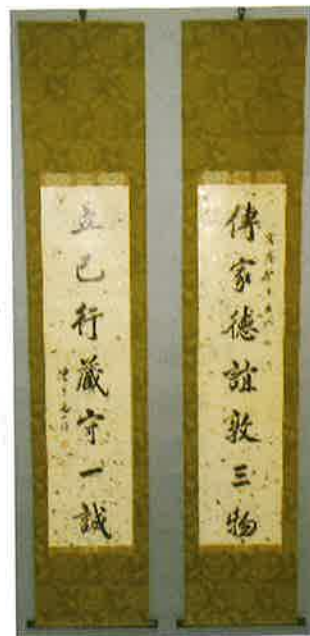 傳家德誼敦三物
立己行藏守一誠